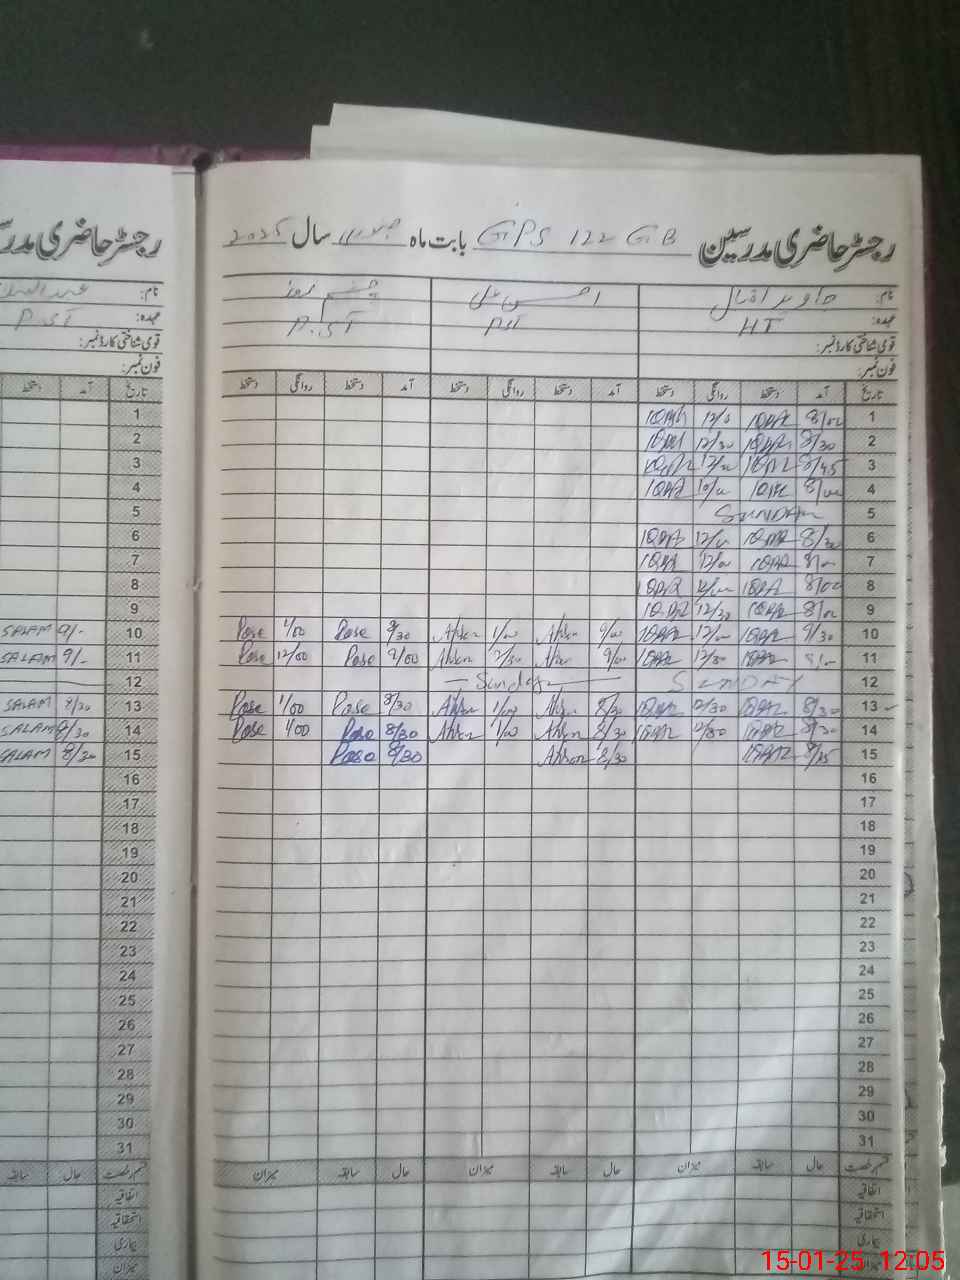 رجسٹر حاضری مدرسین GPS 122 GB بابت ماہ جنوری سال 2025
نام: جاوید اقبال
عہدہ: HT PST P.ST
قومی شناختی کارڈ نمبر:
فون نمبر:
تاریخ آمد دستخط روانگی دستخط آمد دستخط روانگی دستخط آمد دستخط روانگی دستخط
1 8/00 IQBAL
2 8/30 IQBAL 12/30 IQBAL
3 8/45 IQBAL IQBAL
4 8/00 IQBAL IQBAL
5 SUNDAY
6 8/30 IQBAL IQBAL
7 IQBAL 12/00 IQBAL
8 8/00 IQBAL IQBAL
9 8/00 IQBAL 12/30 IQBAL
10 9/30 IQBAL 12/00 IQBAL 9/00 Ahsan 1/00 Ahsan Rose 1/00 Rose
11 IQBAL 12/30 IQBAL 9/00 Ahsan Ahsan 9/00 Rose 12/00 Rose
12 SUNDAY Sunday
13 8/30 IQBAL 12/30 IQBAL 8/30 Ahsan 1/00 Ahsan 8/30 Rose 1/00 Rose
14 8/30 IQBAL 12/30 IQBAL 8/30 Ahsan 1/00 Ahsan 8/30 Rose 1/00 Rose
15 IQBAL 8/30 Ahsan 8/30 Rose
16
17
18
19
20
21
22
23
24
25
26
27
28
29
30
31
قسم رخصت حال سابقہ میزان حال سابقہ میزان حال سابقہ میزان
اتفاقیہ
استحقاقیہ
بیماری
میزان
رجسٹر حاضری مدر
نام:
عہدہ: P.ST
قومی شناختی کارڈ نمبر:
فون نمبر:
تاریخ آمد دستخط
1
2
3
4
5
6
7
8
9
10 9/- SALAM
11 9/- SALAM
12
13 8/30 SALAM
14 8/30 SALAM
15 8/30 SALAM
16
17
18
19
20
21
22
23
24
25
26
27
28
29
30
31
قسم رخصت حال سابقہ
اتفاقیہ
استحقاقیہ
بیماری
میزان
15-01-25 12:05